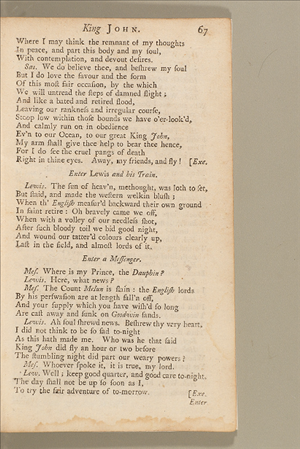 King JOHN. 67
Where I may think the remnant of my thoughts
In peace, and part this body and my soul,
With contemplation, and devout desires.
Sal. We do believe thee, and beshrew my soul
But I do love the favour and the form
Of this most fair occasion, by the which
We will untread the steps of damned flight;
And like a bated and retired flood,
Leaving our rankness and irregular course,
Stoop low within those bounds we have o'er-look'd,
And calmly run on in obedience
Ev'n to our Ocean, to our great King John,
My arm shall give thee help to bear thee hence,
For I do see the cruel pangs of death
Right in thine eyes. Away, my friends, and fly! [Exe.
Enter Lewis and his Train.
Lewis. The sun of heav'n, methought, was loth to set,
But staid, and made the western welkin blush;
When th' English measur'd backward their own ground
In faint retire: Oh bravely came we off,
When with a volley of our needless shot,
After such bloody toil we bid good night,
And wound our tatter'd colours clearly up,
Last in the field, and almost lords of it.
Enter a Messenger.
Mes. Where is my Prince, the Dauphin?
Lewis. Here, what news?
Mes. The Count Melun is slain: the English lords
By his perswasion are at length fall'n off,
And your supply which you have wish'd so long
Are cast away and sunk on Goodwin sands.
Lewis. Ah foul shrewd news. Beshrew thy very heart,
I did not think to be so sad to-night
As this hath made me. Who was he that said
King John did fly an hour or two before
The stumbling night did part our weary powers?
Mes. Whoever spoke it, it is true, my lord.
Lew. Well; keep good quarter, and good care to-night,
The day shall not be up so soon as I,
To try the fair adventure of to-morrow. [Exe.
Enter